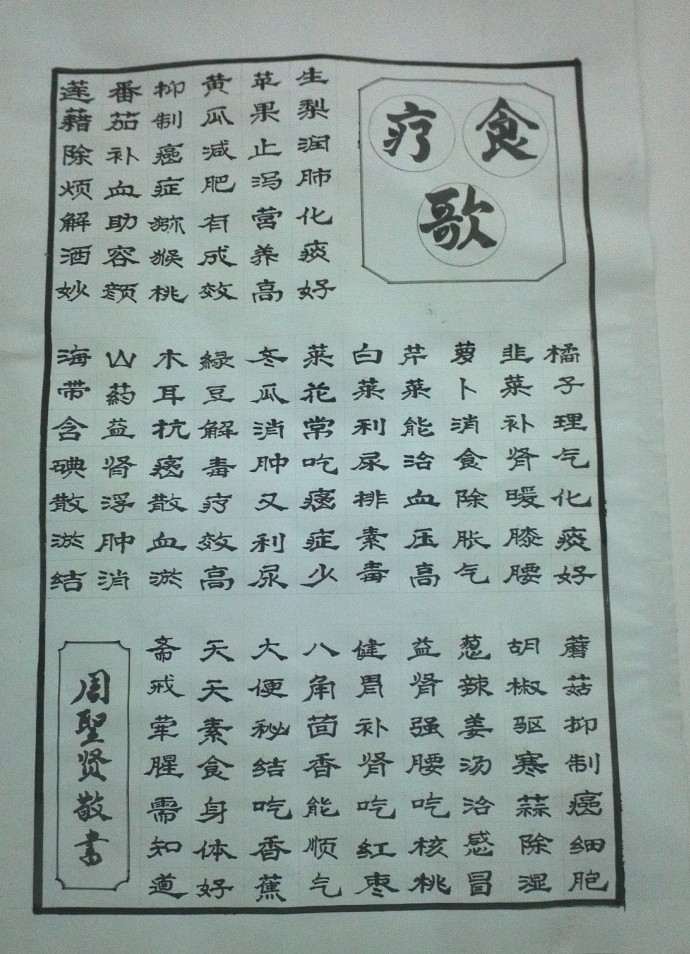 食疗歌
生梨润肺化痰好
苹果止泻营养高
黄瓜减肥有成效
抑制癌症猕猴桃
番茄补血助容颜
莲藉除烦解酒妙
橘子理气化痰好
韭菜补肾暖膝腰
萝卜消食除胀气
芹菜能治血压高
白菜利尿排素毒
菜花常吃癌症少
冬瓜消肿又利尿
緑豆解毒疗效高
木耳抗癌散血淤
山药益肾浮肿消
海带含碘散淤结
蘑菇抑制癌细胞
胡椒驱寒蒜除湿
葱辣姜汤治感冒
益肾强腰吃核桃
健胃补肾吃红枣
八角茴香能顺气
大便秘结吃香蕉
天天素食身体好
斋戒荤腥需知道
周聖贤敬书